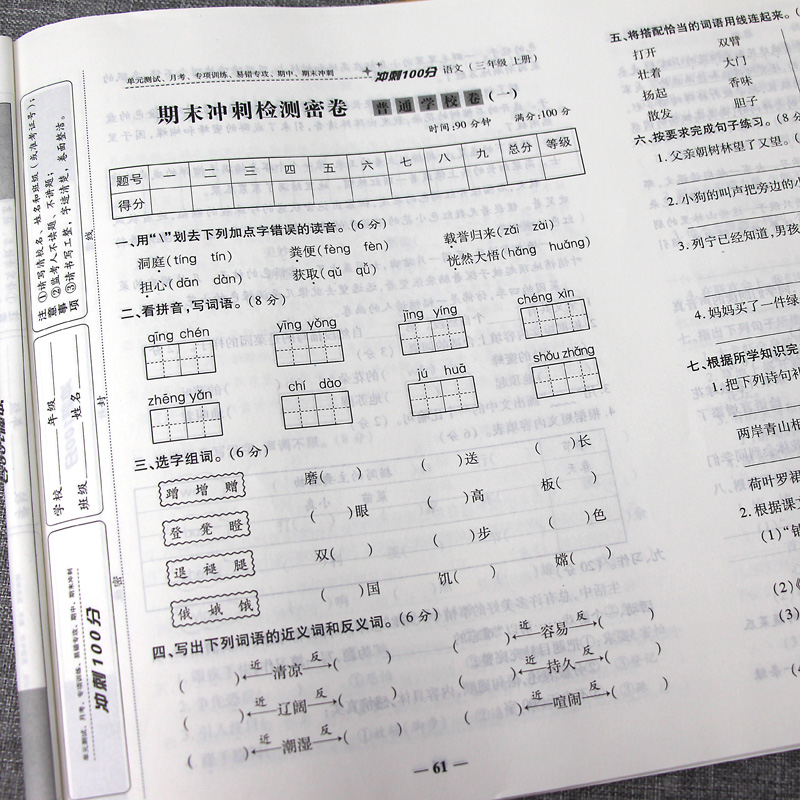 单元测试、月考、专项训练、易错专攻、期中、期末冲刺 冲刺100分 语文（三年级 上册）
期末冲刺检测密卷 普通学校卷（一）
时间：90分钟 满分：100分
题号 一 二 三 四 五 六 七 八 九 总分 等级
得分
一、用“\”划去下列加点字错误的读音。（6分）
洞庭（tíng tín） 粪便（fèng fèn） 载誉归来（zǎi zài）
担心（dān dàn） 获取（qǔ qǚ） 恍然大悟（hǎng huǎng）
二、看拼音，写词语。（8分）
qīng chén yīng yǒng jīng yíng chéng xìn
zhēng yǎn chí dào jú huā shǒu zhǎng
三、选字组词。（6分）
蹭 增 赠 磨（ ） （ ）送 （ ）长
登 凳 瞪 （ ）眼 （ ）高 板（ ）
退 褪 腿 双（ ） （ ）步 （ ）色
俄 娥 饿 （ ）国 饥（ ） 嫦（ ）
四、写出下列词语的近义词和反义词。（6分）
（ ）近清凉反（ ） （ ）近容易反（ ）
（ ）近辽阔反（ ） （ ）近持久反（ ）
（ ）近潮湿反（ ） （ ）近喧闹反（ ）
— 61 —
五、将搭配恰当的词语用线连起来。（
打开 双臂
壮着 大门
扬起 香味
散发 胆子
六、按要求完成句子练习。（8分
1.父亲朝树林望了又望。（
2.小狗的叫声把旁边的小
3.列宁已经知道，男孩
4.妈妈买了一件绿
七、根据所学知识完
1.把下列诗句补
两岸青山相
荷叶罗裙
2.根据课文
（1）“错
（2）《
（3）
（4）
注意事项
①请写清校名、姓名和班级（或准考证号）；
②监考人不读题、不讲题；
③请书写工整，字迹清楚，卷面整洁。
学校 年级
班级 姓名
密 封 线
单元测试、月考、专项训练、易错专攻、期中、期末冲刺
冲刺100分